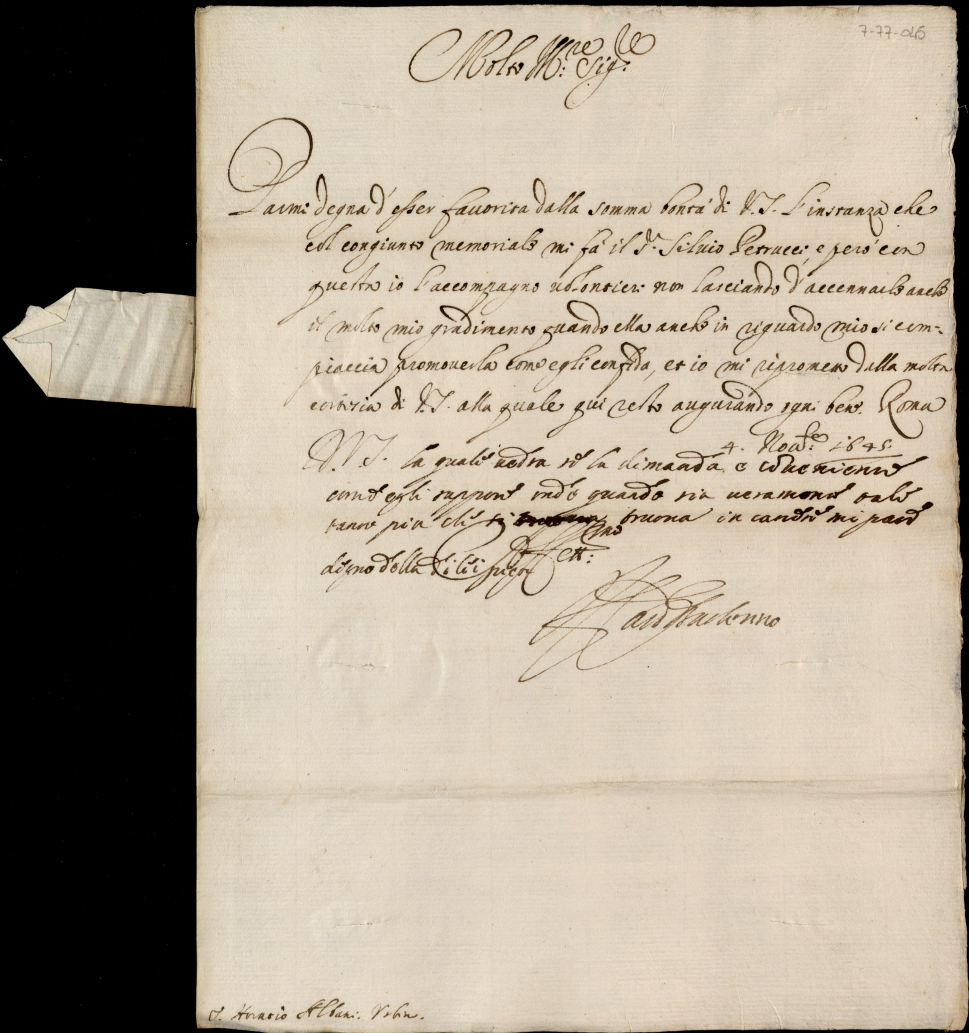 7-77-045
Molto Ill:re Sig:re
Parmi degna d'esser favorita dalla somma bontà di V.S. l'instanza che
col congiunto memoriale mi fà il S.r Silvio Petrucci, e però con
questa io l'accompagno volontieri non lasciando d'accennarle anche
il molto mio gradimento quando ella anche in riguardo mio si com-
piaccia promoverla come egli confida, et io mi riprometto dalla molta
cortesia di V.S. alla quale qui resto augurando ogni bene. Roma
4. Nov.re 1645
V.S. la quale vedrà se la dimanda è conveniente
come egli suppone onde quando sia veramente tale
tanto più che si trova in mi pare
degno della di lei
Aff.mo
Card
S. Horatio Albani. Urbin.